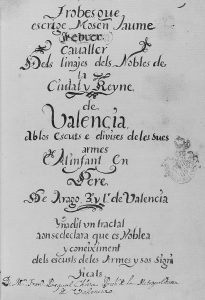 Trobes que
escrigé Mosen Jaume
Febrer
Cavaller
Dels linajes dels Nobles de
la
Ciutat y Reyne
de
Valencia,
ab los Escuts e divises de les sues
armes
Al Infant En
Pere
De Arago, Ry Lt. de Valencia
Yñadit un tractat
aon se declara que es Noblea
y coneiximent
dels escuts de les Armes y sos Signi
ficats